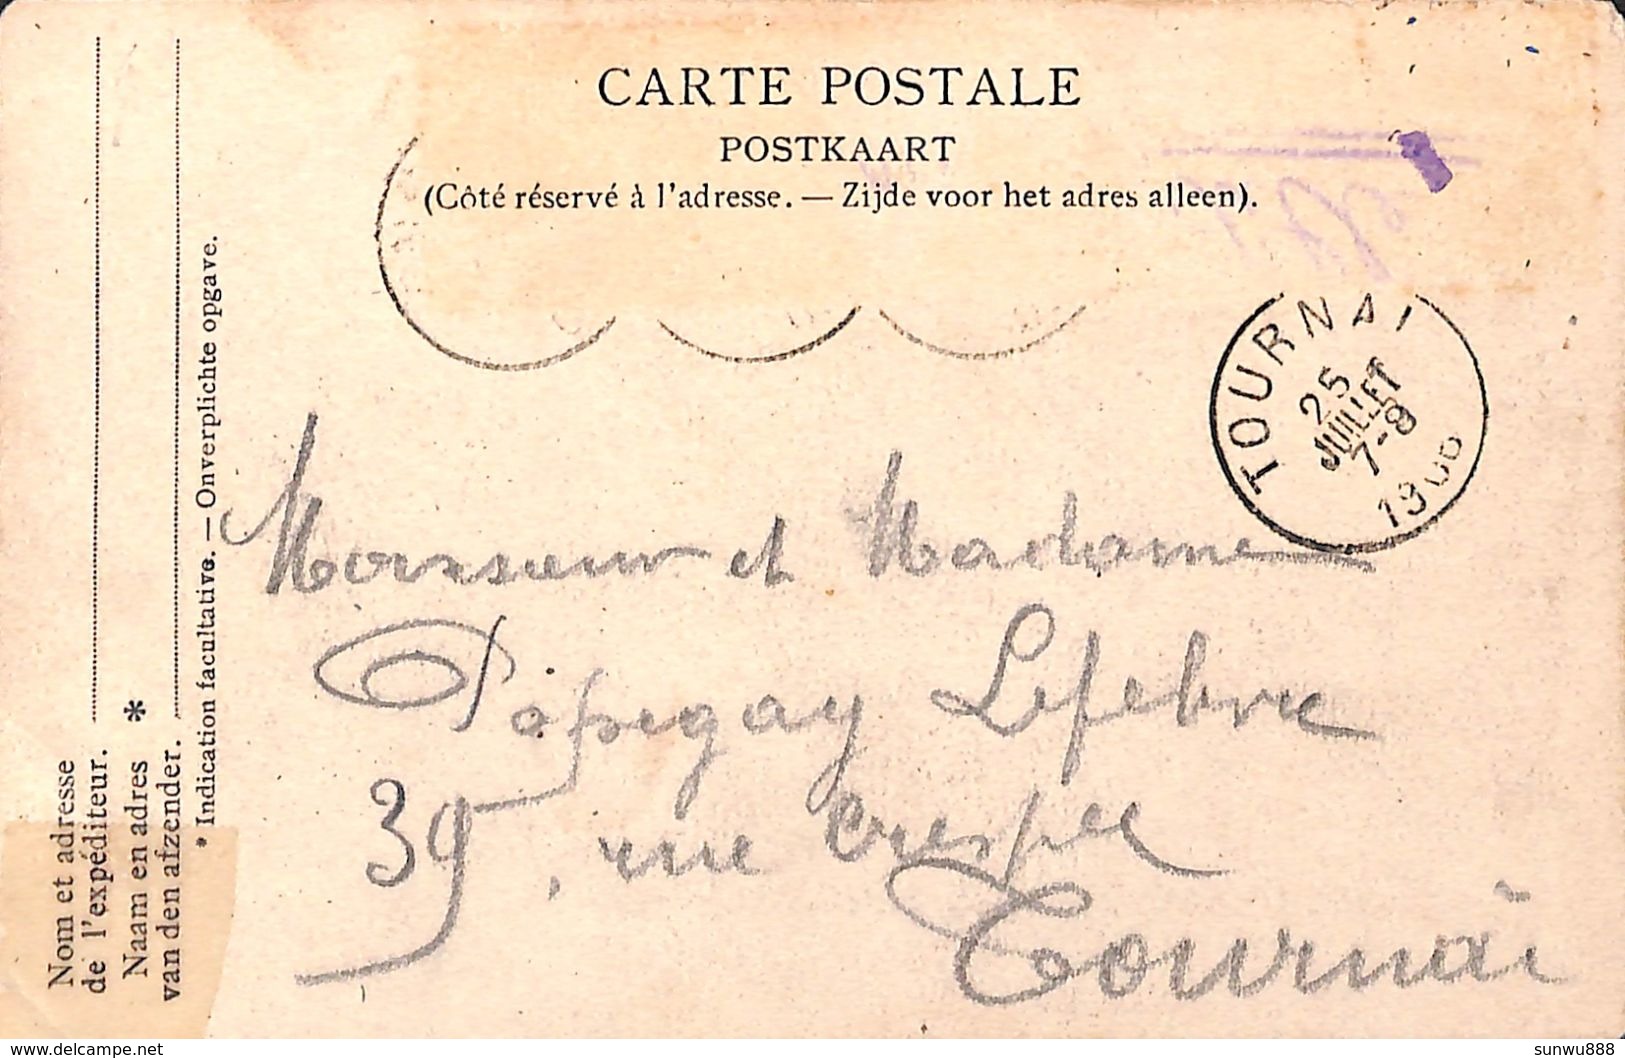 CARTE POSTALE
POSTKAART
(Côté réservé à l'adresse. — Zijde voor het adres alleen).
TOURNAI
25
JUILLET
7-8
Monsieur et Madame
Lefebvre
39, rue Crespel
Tournai
Nom et adresse
de l'expéditeur.
Naam en adres *
van den afzender.
* Indication facultative. — Onverplichte opgave.
www.delcampe.net
sunwu888